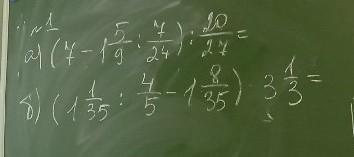 №1
а) (7 - 1 5/9 : 7/24) : 20/27 =
б) (1 1/35 : 4/5 - 1 8/35) · 3 1/3 =